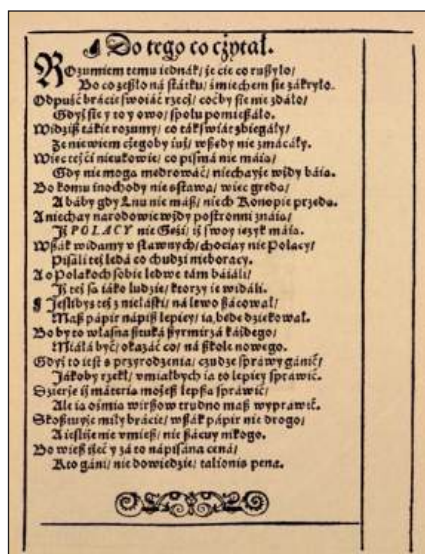 Do tego co cżytał.
ROzumiem temu iednák/ że cie co rußyło/
Bo co zeßło ná státku/ śmiechem sie zákryło.
Odpuść brácie swoiáć rzecż/ coćby sie nie zdáło/
Gdyż sie y to y owo/ społu pomießáło.
Widziß tákie rozumy/ co ták świát zbiegáły/
Że niewiem cżegoby iuż/ wßędy nie zmácáły.
Więc też ći nieukowie/ co pismá nie máią/
Gdy nie mogą mędrowáć/ niechayże wżdy báią.
Bo komu inochody nie sstawa/ więc grędą/
A baby gdy Lnu nie máß/ niech Konopie przędą.
A niechay narodowie wżdy postronni znáią/
Iż POLACY nie Gęśi/ iż swoy ięzyk máią.
Wßák widamy v sławnych/ choćiay nie Polacy/
Pisáli też ledá co chudzi nieboracy.
A o Polakoch sobie ledwe tám báiáli/
Iż też są iáko ludzie/ ktorzy ie widáli.
Ieslibyś też z nieláski/ ná lewo ßácowáł/
Maß pápir nápiß lepiey/ ia będę dziękowáł.
Bo by to własna ßtuká ßyrmirzá káżdego/
Miáłá być/ okazáć co/ ná ßkole nowego.
Gdyż to iest s przyrodzenia/ cudze spráwy gánić/
Jákoby rzekł/ vmiałbych ia to lepiey spráwić.
Szcżerze iż máterią możeß lepßą spráwić/
Ale ią ośmią wirßow trudno maß wypráwić.
Skoßtuyże miły brácie/ wßák pápir nie drogo/
A iesliże nie vmieß/ nie ßácuy nikogo.
Bo wieß iżeć y zá to nápisána cená/
Kto gáni/ nie dowiedzie/ talionis pená.